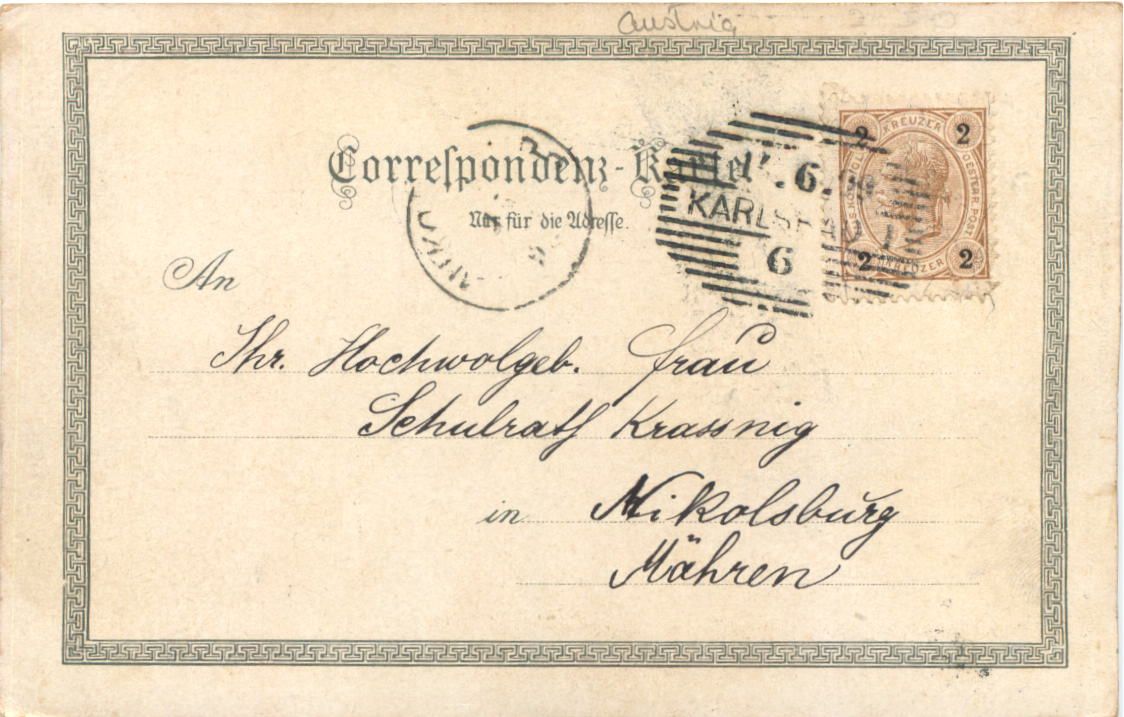 Austria
Correspondenz-Karte
Nur für die Adresse.
An
Ihr. Hochwolgeb. Frau
Schulrath Krassnig
in Nikolsburg
Mähren
KREUZER
2 2
OESTERR. POST
2 2
KREUZER
6.
KARLSBAD
6